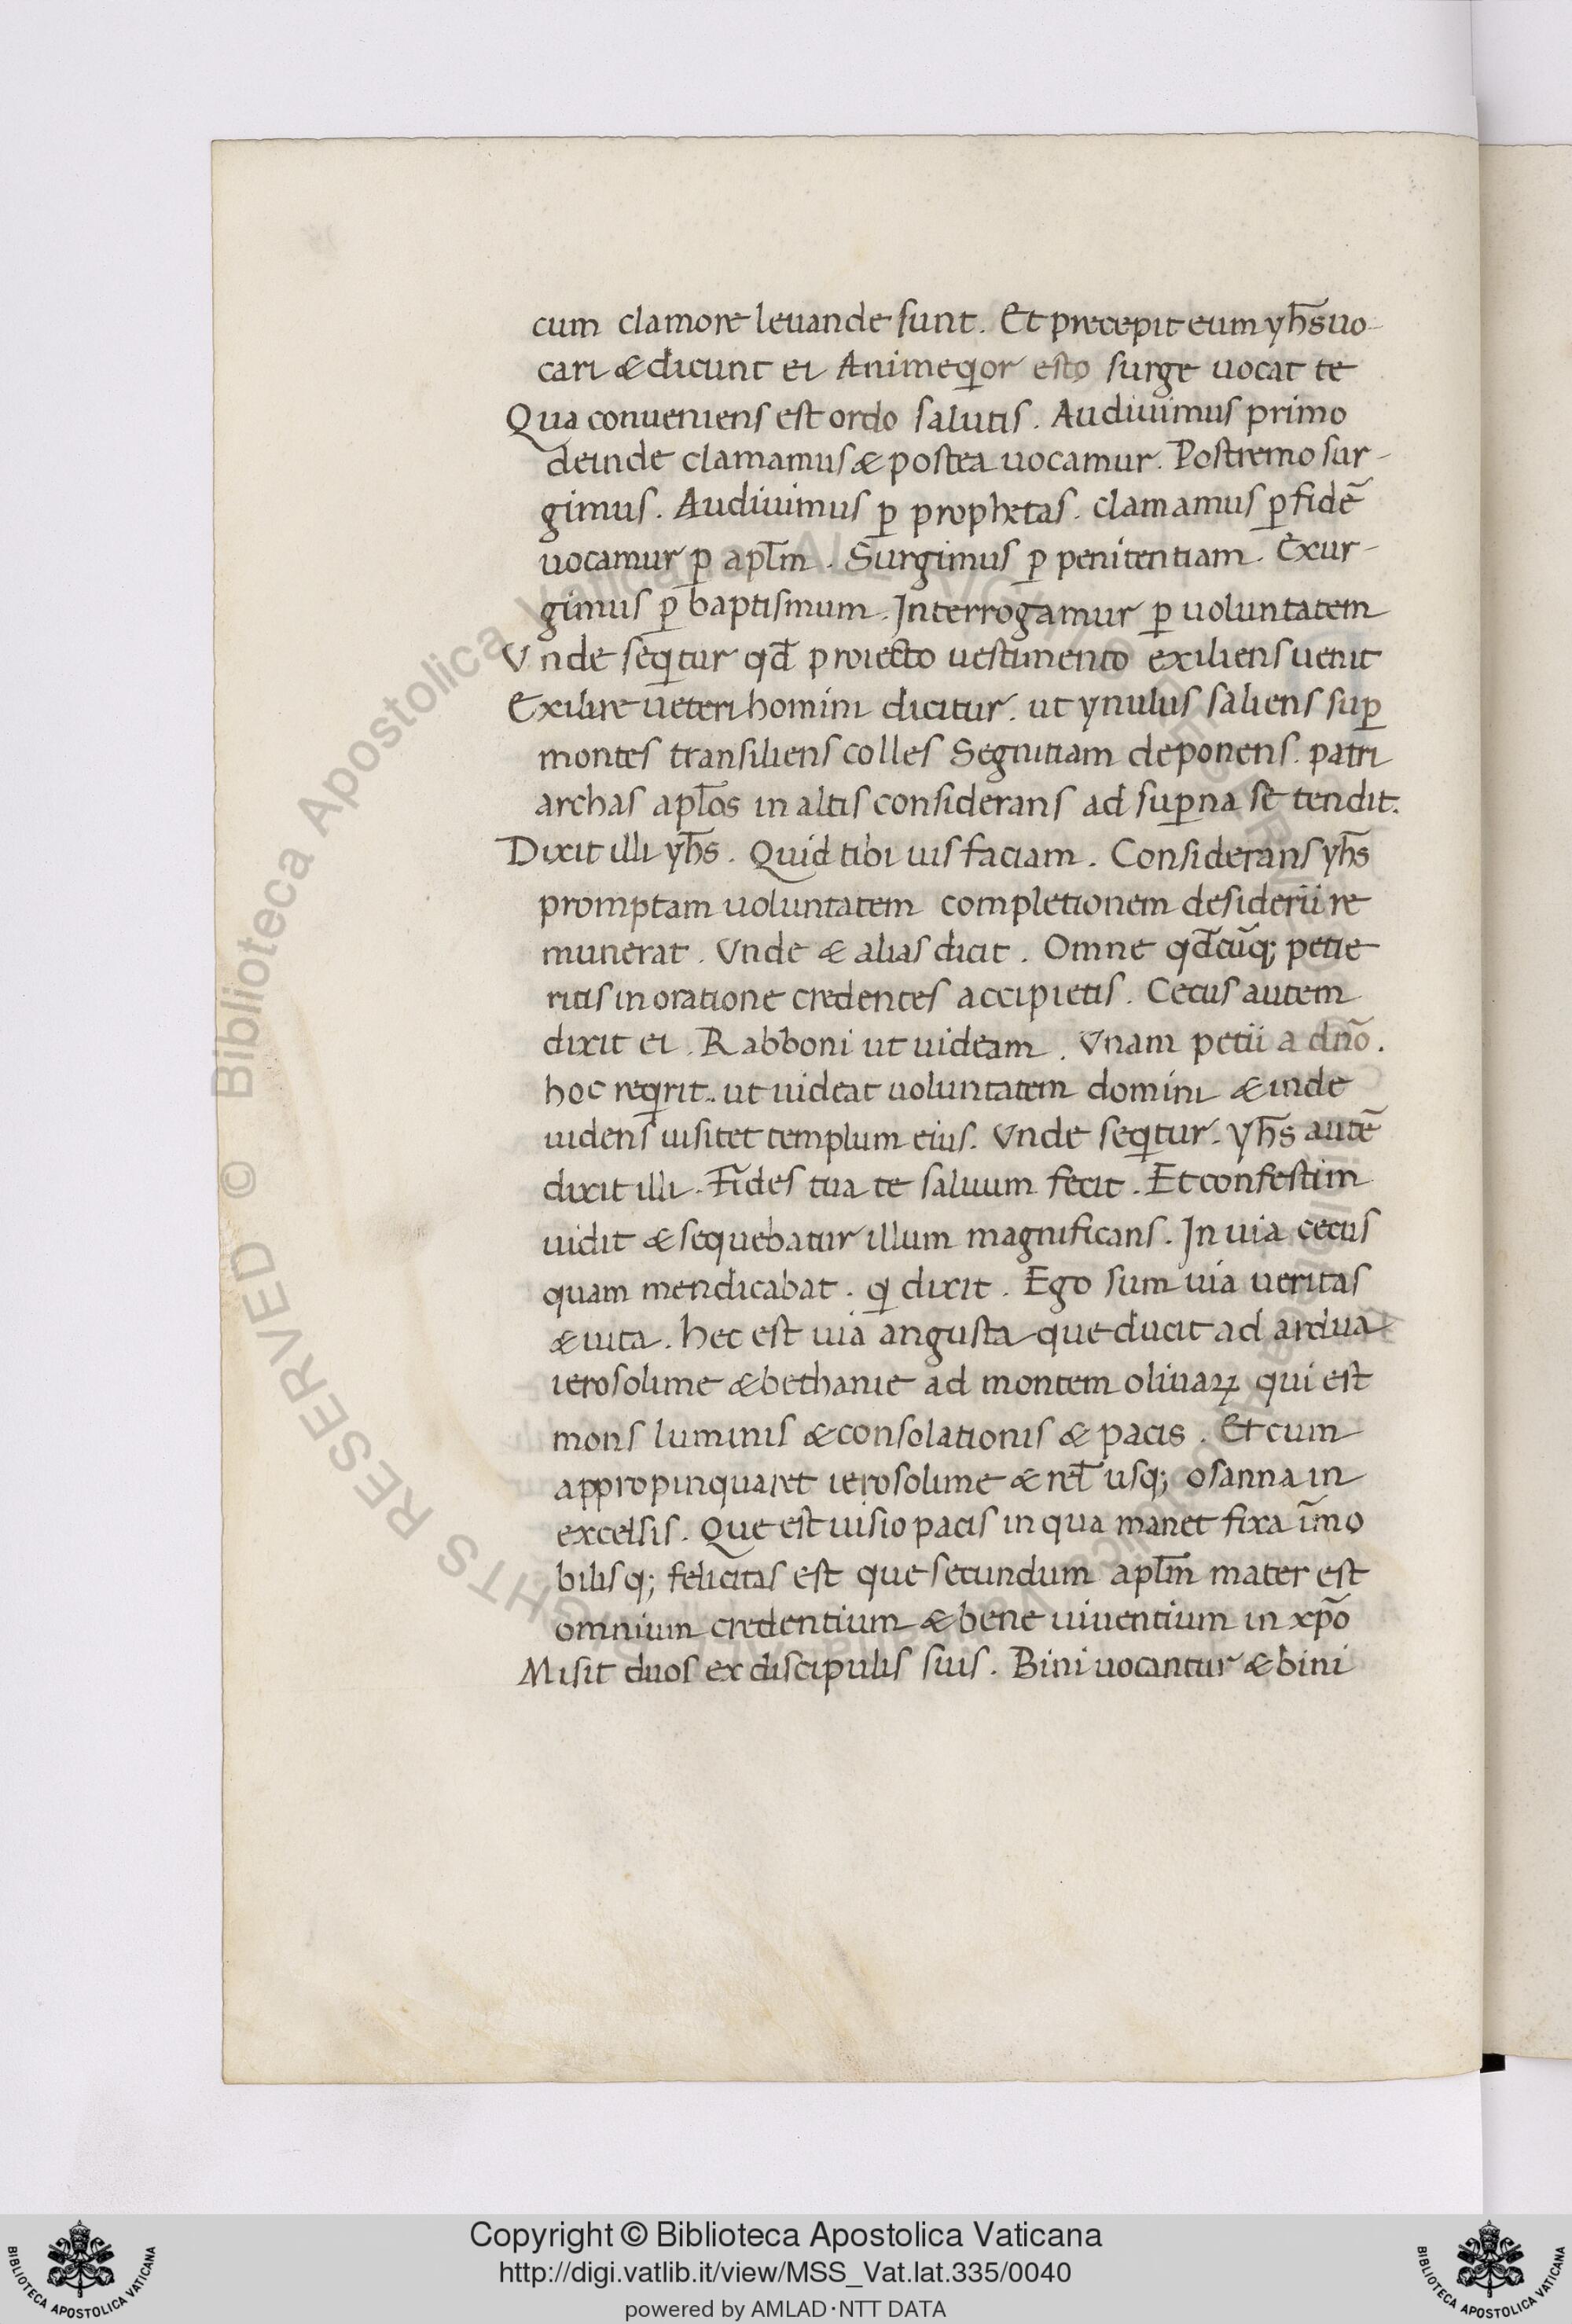 cum clamore leuande sunt. Et precepit eum yh̄s uo-
cari & dicunt ei Animeqͥor esto surge uocat te
Qua conueniens est ordo salutis. Audiuimus primo
deinde clamamus & postea uocamur. Postremo sur-
gimus. Audiuimus ꝑ prophetas. clamamus ꝑ fidē
uocamur ꝑ apl̄m. Surgimus ꝑ penitentiam. Exur-
gimus ꝑ baptismum. Interrogamur ꝑ uoluntatem
Vnde seqͥtur qd̄ proiecto uestimento exiliens uenit
Exilire ueteri homini dicitur. ut ynulus saliens suꝑ
montes transiliens colles Segnitiam deponens. patri
archas apl̄os in altis considerans ad suꝑna se tendit.
Dixit illi yh̄s. Quid tibi uis faciam. Considerans yh̄s
promptam uoluntatem completionem desiderii re
munerat. Vnde & alias dicit. Omne qd̄cūq; petie
ritis in oratione credentes accipietis. Cecus autem
dixit ei. Rabboni ut uideam. Vnam petii a dn̄o.
hoc reqͥrit.. ut uideat uoluntatem domini & inde
uidens uisitet templum eius. Vnde seqͥtur. yh̄s autē
dixit illi. Fides tua te saluum fecit. Et confestim
uidit & sequebatur illum magnificans. In uia cecus
quam mendicabat. qͥ dixit. Ego sum uia ueritas
& uita. hec est uia angusta que ducit ad ardua
ierosolime & bethanie ad montem oliuaꝝ qui est
mons luminis & consolationis & pacis. Et cum
appropinquaret ierosolime & rel̄ usq; osanna in
excelsis. Que est uisio pacis in qua manet fixa īmo
bilisq; felicitas est que secundum apl̄m mater est
omnium credentium & bene uiuentium in xp̄o
Misit duos ex discipulis suis. Bini uocantur & bini
Copyright © Biblioteca Apostolica Vaticana
http://digi.vatlib.it/view/MSS_Vat.lat.335/0040
powered by AMLAD·NTT DATA
BIBLIOTECA APOSTOLICA VATICANA
BIBLIOTECA APOSTOLICA VATICANA